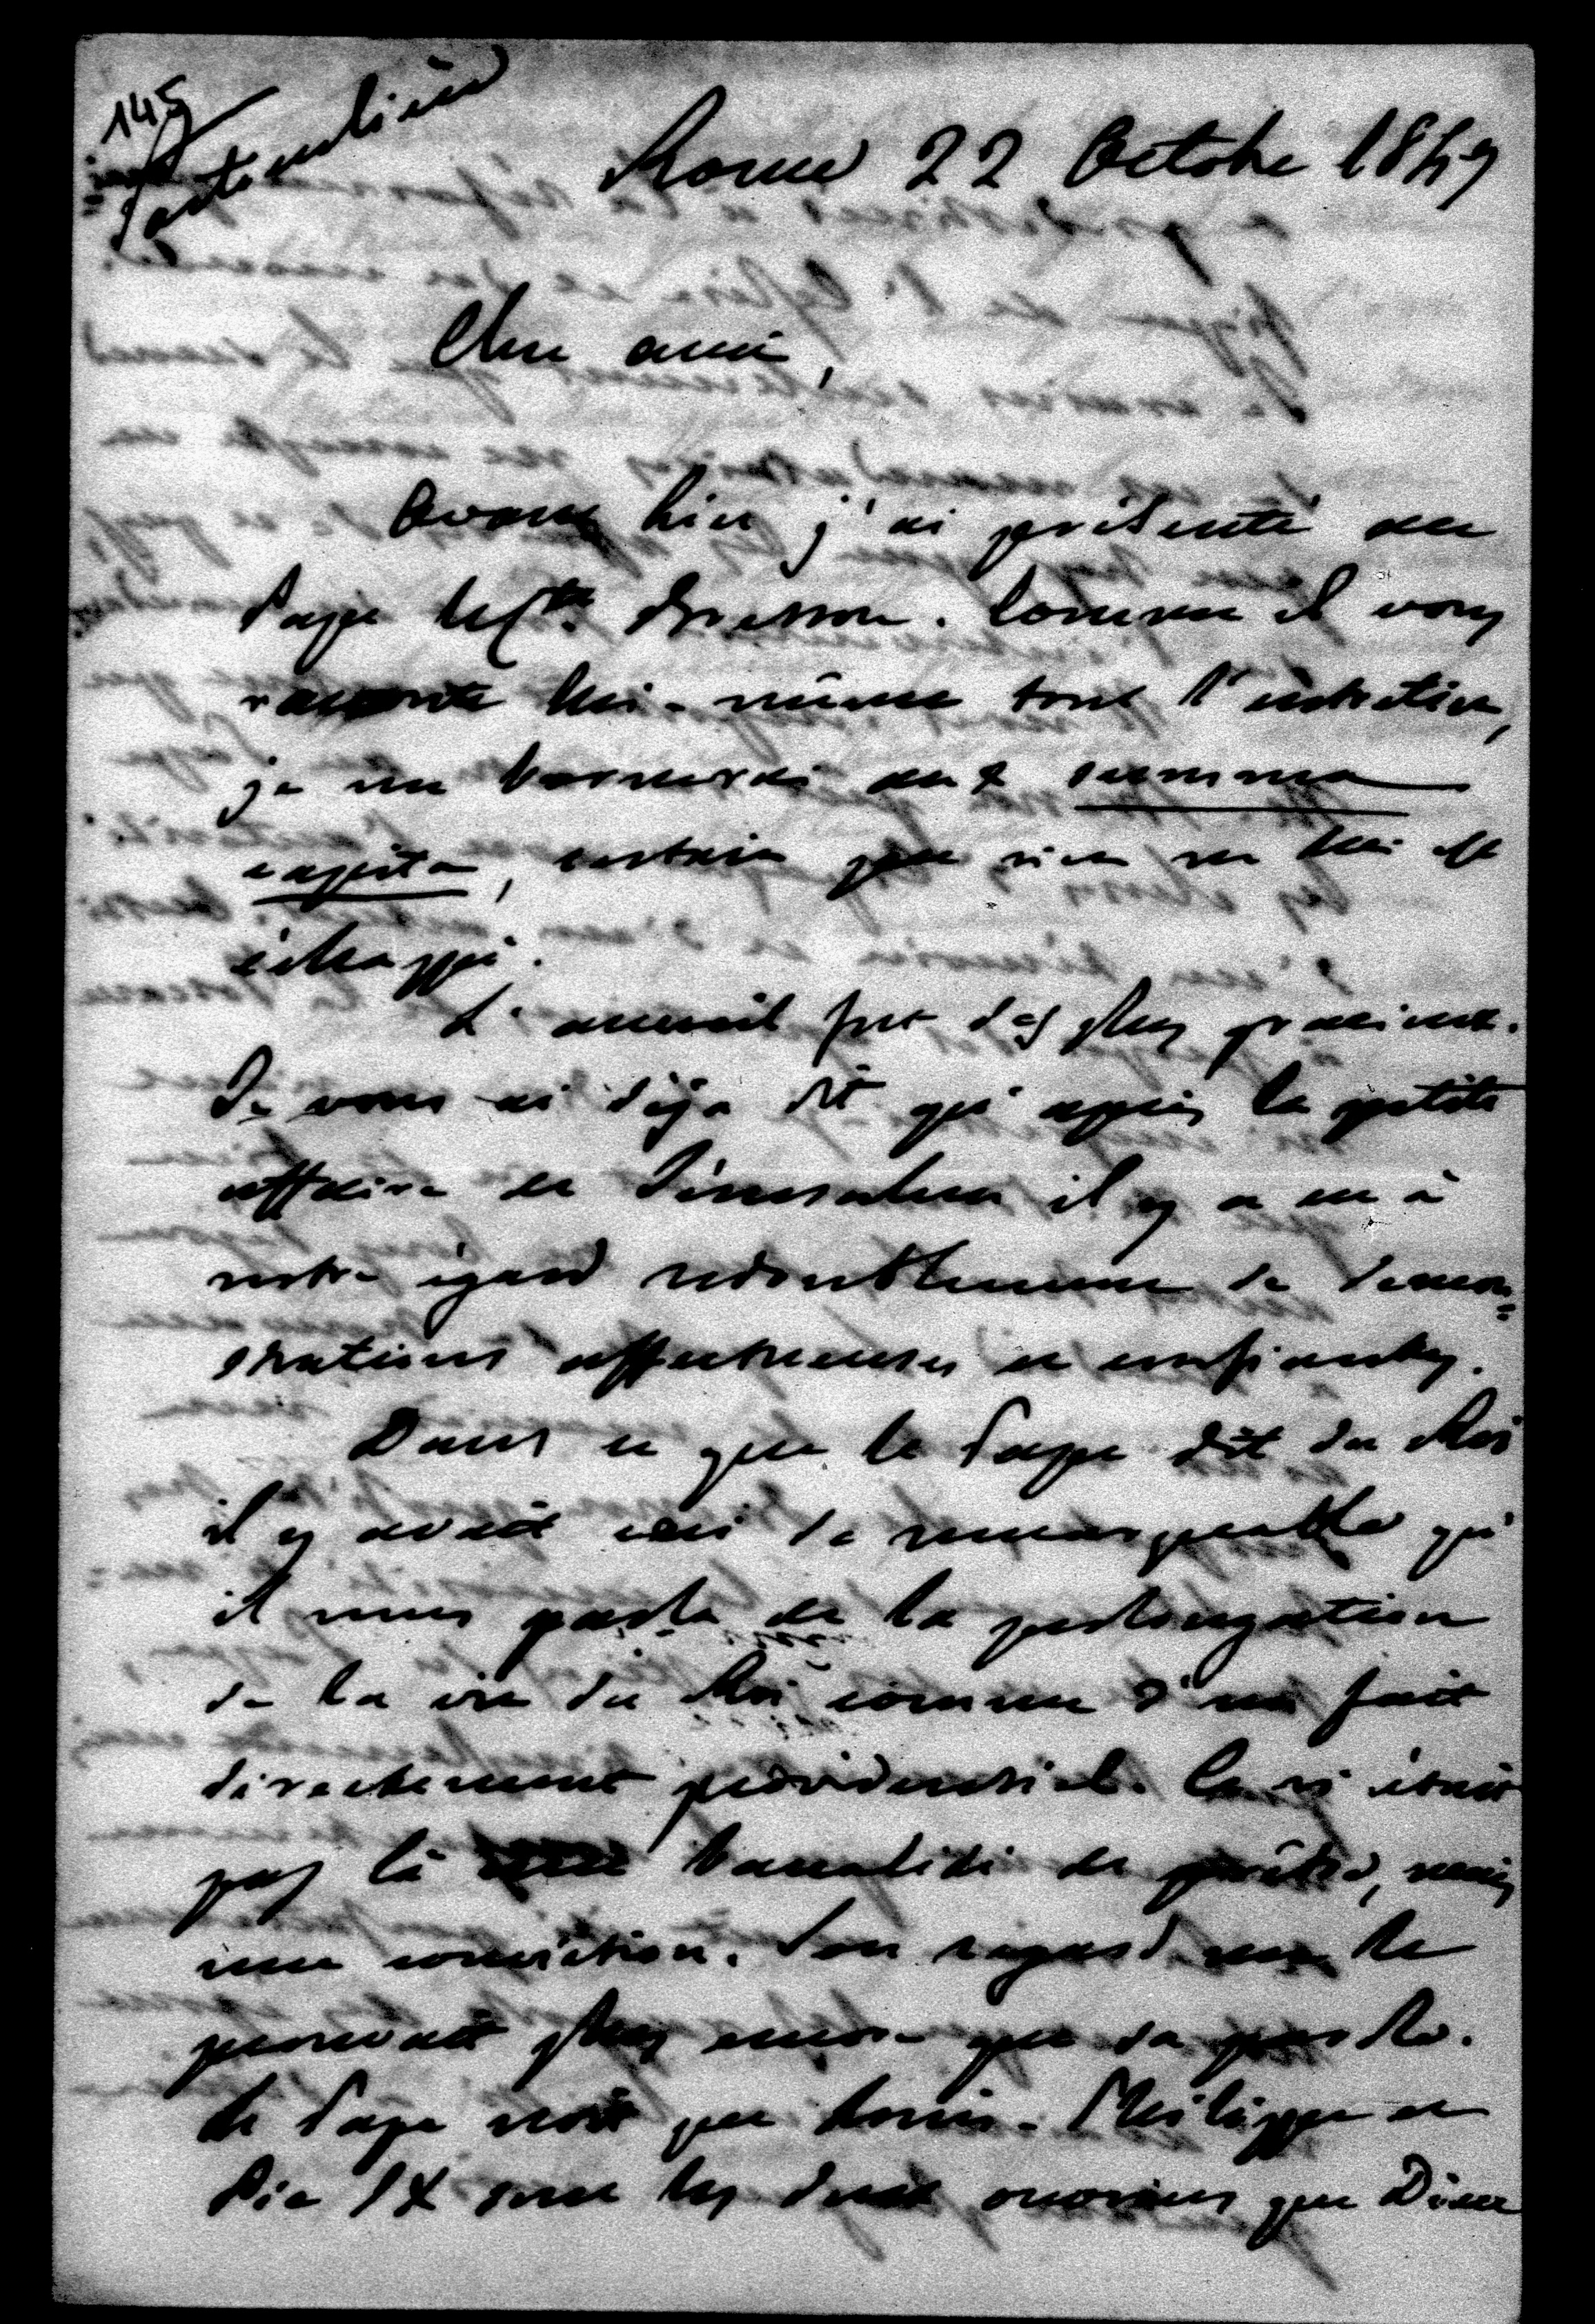 145
Particulière
Rome 22 Octobre 1847
Cher ami,
Avant hier j'ai présenté au
Pape le Cte. Bresson. Comme il vous
raconte lui-même tout l'entretien,
je me bornerai aux summa
capita, certain que rien ne lui est
échappé.
L'accueil fut des plus gracieux.
Je vous ai déjà dit qu'après la petite
affaire de Jérusalem il y a eu à
notre égard redoublement de démon=
strations affectueuses et confiantes.
Dans ce que le Pape dit du Roi
il y avait ceci de remarquable qu'
il nous parla de la prolongation
de la vie du Roi comme d'un fait
directement providentiel. Ce n'était
pas là une banalité de prêtre, mais
une conviction. Son regard me le
prouvait plus encore que sa parole.
Le Pape croit que Louis-Philippe et
Pie IX sont les deux que Dieu